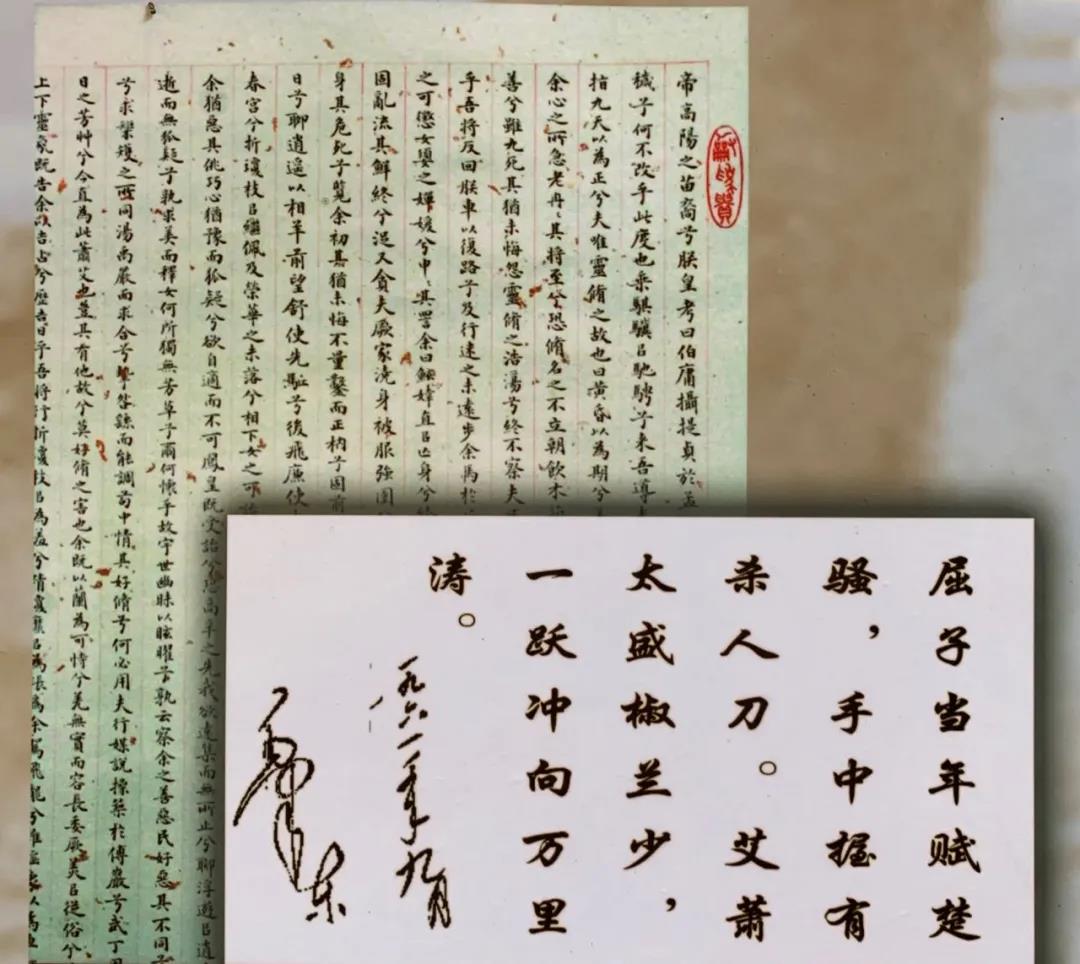 帝高陽之苗裔兮朕皇考曰伯庸攝提貞於孟
穢兮何不改乎此度也乘騏驥㠯馳騁兮来吾導
指九天以為正兮夫唯靈脩之故也曰黄昏以為期兮
余心之所急老冉〻其將至兮恐脩名之不立朝飲木
善兮雖九死其猶未悔怨靈脩之浩蕩兮終不察夫
乎吾將反回朕車以復路兮及行迷之未遠步余馬於
之可懲女嬃之嬋媛兮申〻其詈余曰鯀婞直㠯亡身兮
固亂流其鮮終兮浞又貪夫厥家澆身被服強圉
身其危死兮覽余初其猶未悔不量鑿而正枘兮固前
日兮聊逍遥以相羊前望舒使先驅兮後飛廉使
春宫兮折瓊枝㠯繼佩及榮華之未落兮相下女之可
余猶惡其佻巧心猶豫而狐疑兮欲自適而不可鳳皇既受詒兮恐高辛之先我欲遠集而無所止兮聊浮遊㠯逍
逝而無狐疑兮孰求美而釋女何所獨無芳草兮爾何懷乎故宇世幽昧以眩曜兮孰云察余之善惡民好惡其不同兮
兮求榘矱之所同湯禹嚴而求合兮摯咎繇而能調苟中情其好脩兮何必用夫行媒說操築於傅巖兮武丁用
日之芳艸兮今直為此蕭艾也豈其有他故兮莫好脩之害也余既以蘭為可恃兮羌無實而容長委厥美㠯從俗兮
上下靈氛既告余以吉占兮歷吉日乎吾將行折瓊枝㠯為羞兮精瓊爢㠯為粻為余駕飛龍兮雜瑶象以為車
屈子当年赋楚
骚，手中握有
杀人刀。艾萧
太盛椒兰少，
一跃冲向万里
涛。
一九六一年九月
毛泽东